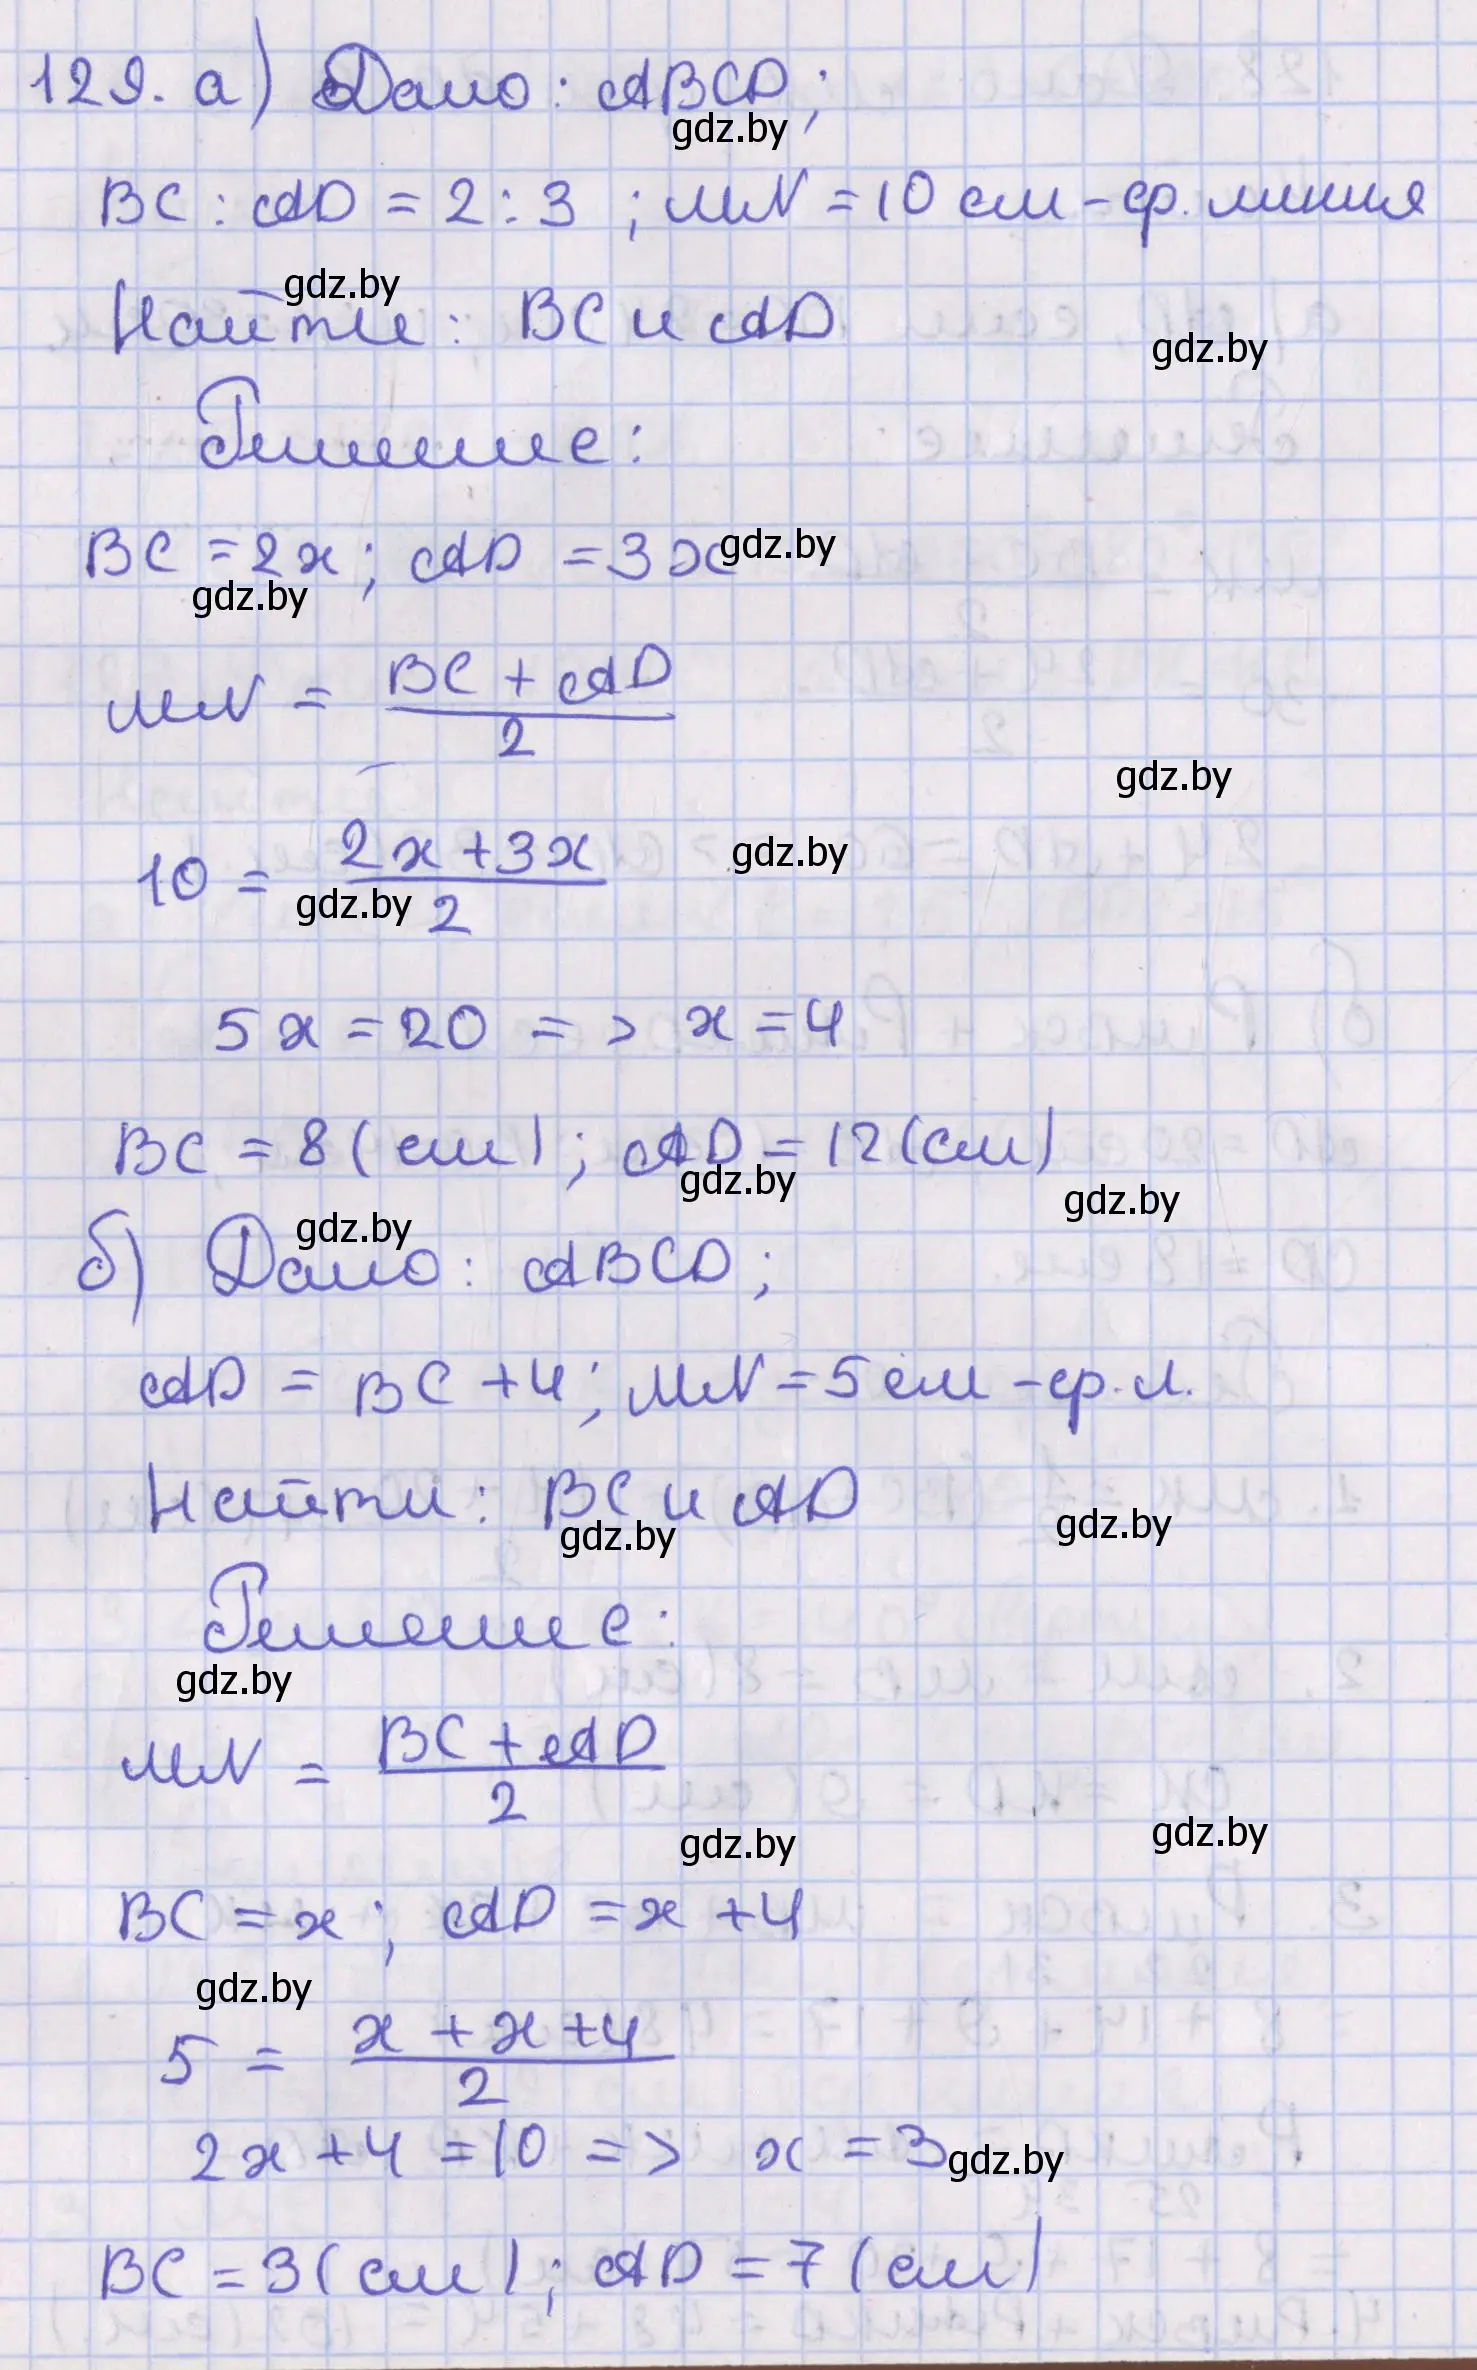 129. а) Дано: ABCD;
gdz.by
BC : AD = 2 : 3 ; MN = 10 см - ср. линия
gdz.by
Найти: BC и AD
gdz.by
Решение:
BC = 2x; AD = 3x
gdz.by
gdz.by
MN = (BC + AD)/2
gdz.by
10 = (2x + 3x)/2
gdz.by
gdz.by
5x = 20 => x = 4
BC = 8 (см); AD = 12 (см)
gdz.by
gdz.by
gdz.by
б) Дано: ABCD;
AD = BC + 4; MN = 5 см - ср. л.
Найти: BC и AD
gdz.by
gdz.by
Решение:
gdz.by
MN = (BC + AD)/2
gdz.by
gdz.by
BC = x; AD = x + 4
gdz.by
5 = (x + x + 4)/2
2x + 4 = 10 => x = 3
gdz.by
BC = 3 (см); AD = 7 (см)